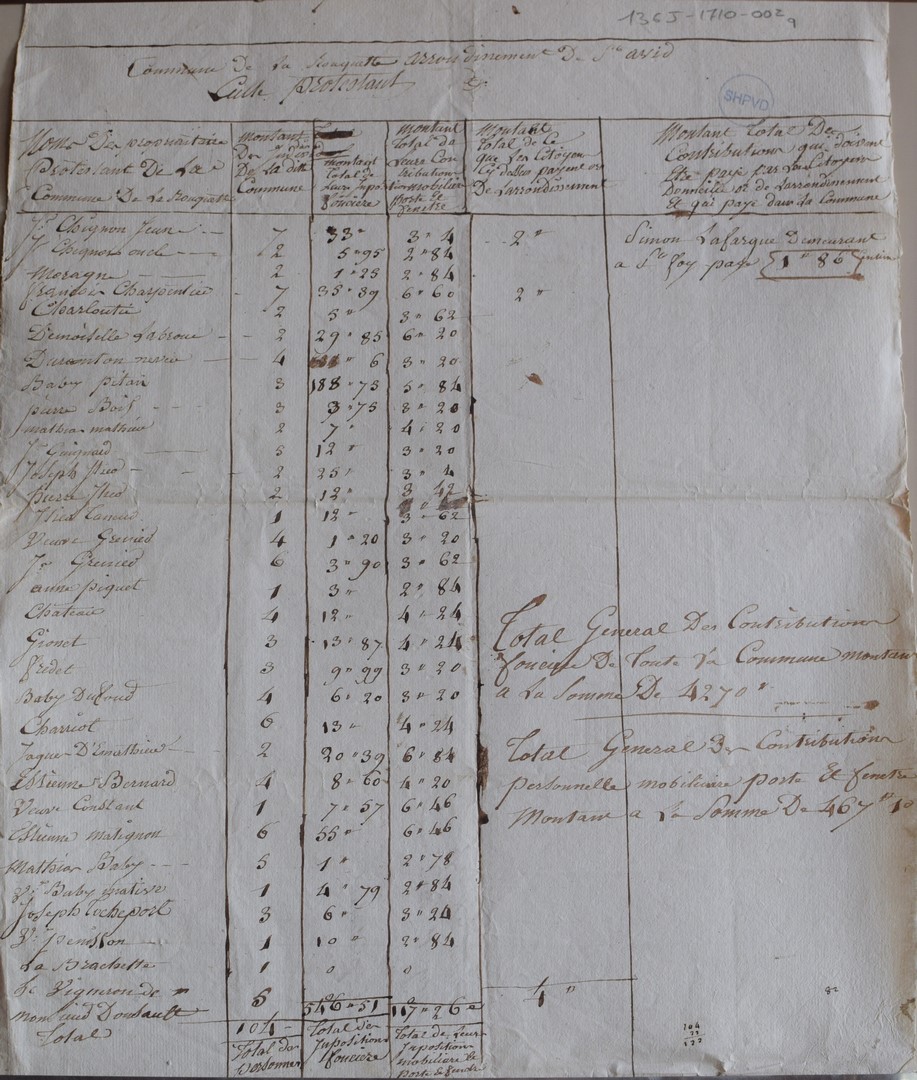 13 CJ-1710-002
9
Commune De La Rouquette arrondissement De Ste avid
Culte Protestant
SHPVD
Noms Des propriétaire Protestant De La Commune De La Rouquette
Montant Des De La ditte Commune
montant Total De Leurs Impositions foncière
Montant Total De Leurs Contributions mobiliere Porte Et fenetre
Montant Total De Ce que Les Citoyen Cy dessus payent De Larrondissement
Montant Total Des Contributions qui doivent Etre payé par Les Citoyen Domicilié De Larrondissement Et qui paye dans la Commune
Jn Cheignon Jeune 7 33 " 3 " 4 2 "
Simon Lafargue Demeurant
J Cheignon oncle 2 5 " 95 2 " 84
a Ste foy paye 1 " 86
Moragne 2 1 " 25 2 " 84
françois Charpentier 7 35 " 39 6 " 60 2 "
Charloutie 2 5 " 3 " 62
Demoiselle Labroue 2 29 " 85 6 " 20
Duranton 4 " 6 3 " 20
Baby pitar 3 188 " 75 5 " 84
pierre Bois 3 3 " 75 3 " 20
mathieu mathieu 2 7 " 4 " 20
Jn Guignard 5 12 " 3 " 20
Joseph 2 25 " 3 " 4
Pierre 2 12 " 3 42
1 12 " 3 " 62
Veuve Grenier 4 1 " 20 3 " 20
Jn Grenier 6 3 " 90 3 " 62
anne piquet 1 3 " 2 " 84
Chateau 4 12 " 4 " 24
Gionet 3 13 " 87 4 " 24
fredet 3 9 " 99 3 " 20
Baby 4 6 " 20 3 " 20
Charriot 6 13 " 4 " 24
Jaques 2 20 " 39 6 " 84
Estienne Bernard 4 8 " 60 4 " 20
Veuve Constant 1 7 " 57 6 " 46
Estienne matignon 6 55 " 6 " 46
Mathieu Baby 5 1 " 2 " 78
Ve Baby 1 4 " 79 2 " 84
Joseph Rocheport 3 6 " 3 " 24
Ve penisson 1 10 " 2 " 84
La Brachette 1 0 0
Le Vigneron de 5 546 " 51 117 " 26 4 "
Total 104
Total des personnes
Total des Impositions foncière
Total de Leurs Imposition mobiliere Et Porte & fenetre
Total General Des Contributions
foncière De Toute La Commune montant
a La Somme De 4270 "
Total General Des Contributions
personnelle mobiliaire porte Et fenetre
Montant a La Somme De 467 " 10
82
104